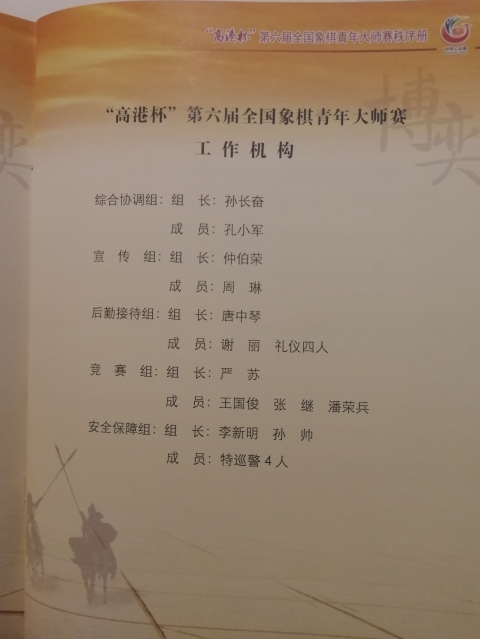 “高港杯”第六届全国象棋青年大师赛秩序册
“高港杯”第六届全国象棋青年大师赛
工作机构
综合协调组：组 长：孙长奋
成 员：孔小军
宣 传 组：组 长：仲伯荣
成 员：周 琳
后勤接待组：组 长：唐中琴
成 员：谢 丽 礼仪四人
竞 赛 组：组 长：严 苏
成 员：王国俊 张 继 潘荣兵
安全保障组：组 长：李新明 孙 帅
成 员：特巡警4人
博
弈